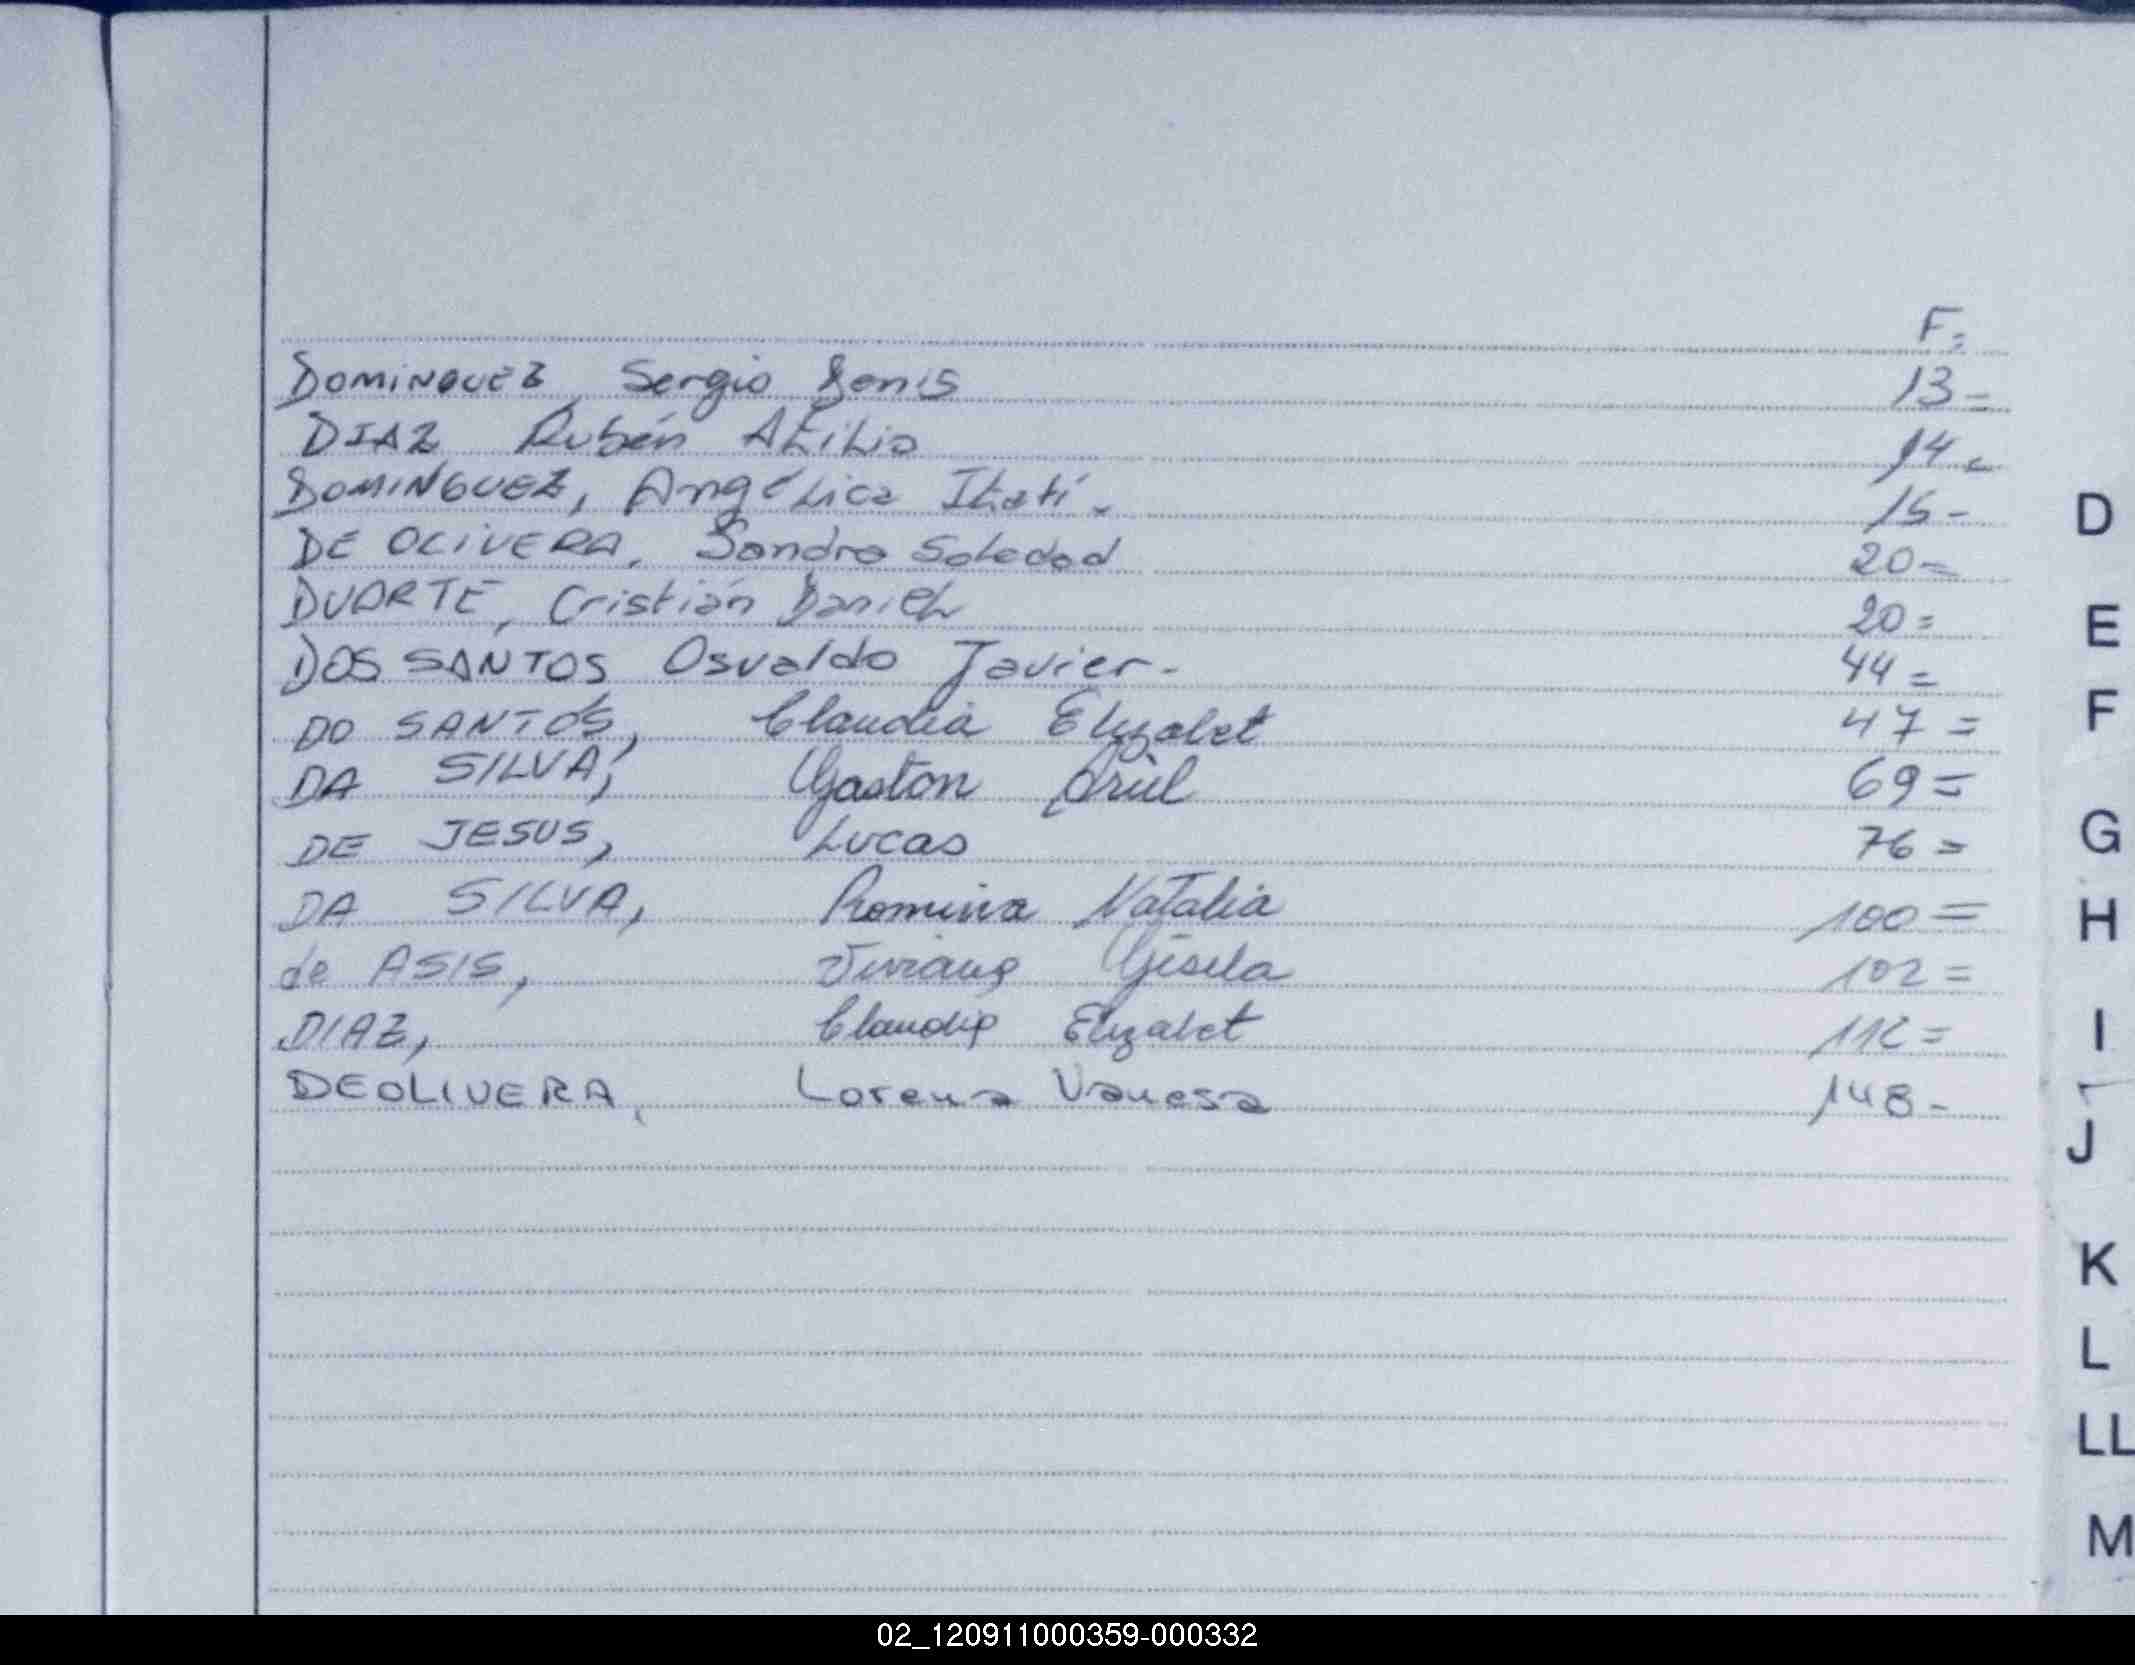 F=
DOMINGUEZ, Sergio Denis 13-
DIAZ Rubén Atilio 14-
DOMINGUEZ, Angélica Itatí- 15-
DE OLIVERA, Sandra Soledad 20-
DUARTE, Cristián Daniel 20=
DOS SANTOS Osvaldo Javier- 44=
DO SANTOS, Claudia Elizabet 47=
DA SILVA, Gaston 69=
DE JESUS, Lucas 76=
DA SILVA, Romina Natalia 100=
de ASIS, Viviana Gisela 102=
DIAZ, Elizabet
DEOLIVERA, Lorena Vanesa 148-
D
E
F
G
H
I
J
K
L
LL
M
02_120911000359-000332